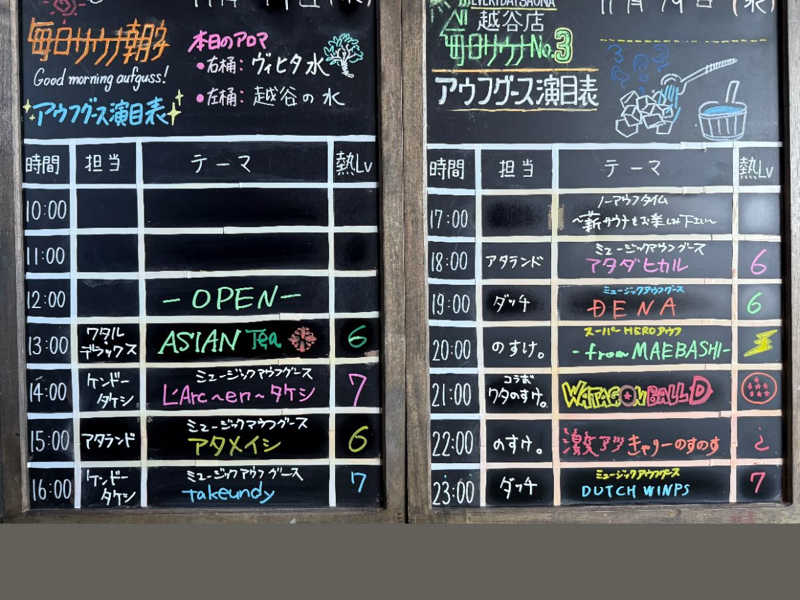 毎日サウナ朝
Good morning aufguss!
アウフグース演目表
本日のアロマ
・右桶:ヴィヒタ水
・左桶:越谷の水
時間 担当 テーマ 熱Lv
10:00
11:00
12:00 -OPEN-
13:00 ワタル・デラックス ASIAN Tea 6
ミュージックアウフグース
14:00 ケンドータケシ L'Arc~en~タケシ 7
ミュージックアウフグース
15:00 アタランド アタメイシ 6
ミュージックアウフグース
16:00 ケンドータケシ takeundy 7
EVERYDAY SAUNA
越谷店
毎日サウナNo.3
アウフグース演目表
時間 担当 テーマ 熱Lv
ノーアウフタイム
17:00 ~薪サウナもお楽しみ下さい~
ミュージックアウフグース
18:00 アタランド アタダヒカル 6
ミュージックアウフグース
19:00 ダッチ ĐENA 6
スーパーHEROアウフ
20:00 のすけ。 -from MAEBASHI-
コラボ
21:00 ワタのすけ。 WATAGONBALL D
22:00 のすけ。 激アツキャリーのすのす ¿
ミュージックアウフグース
23:00 ダッチ DUTCH WINPS 7